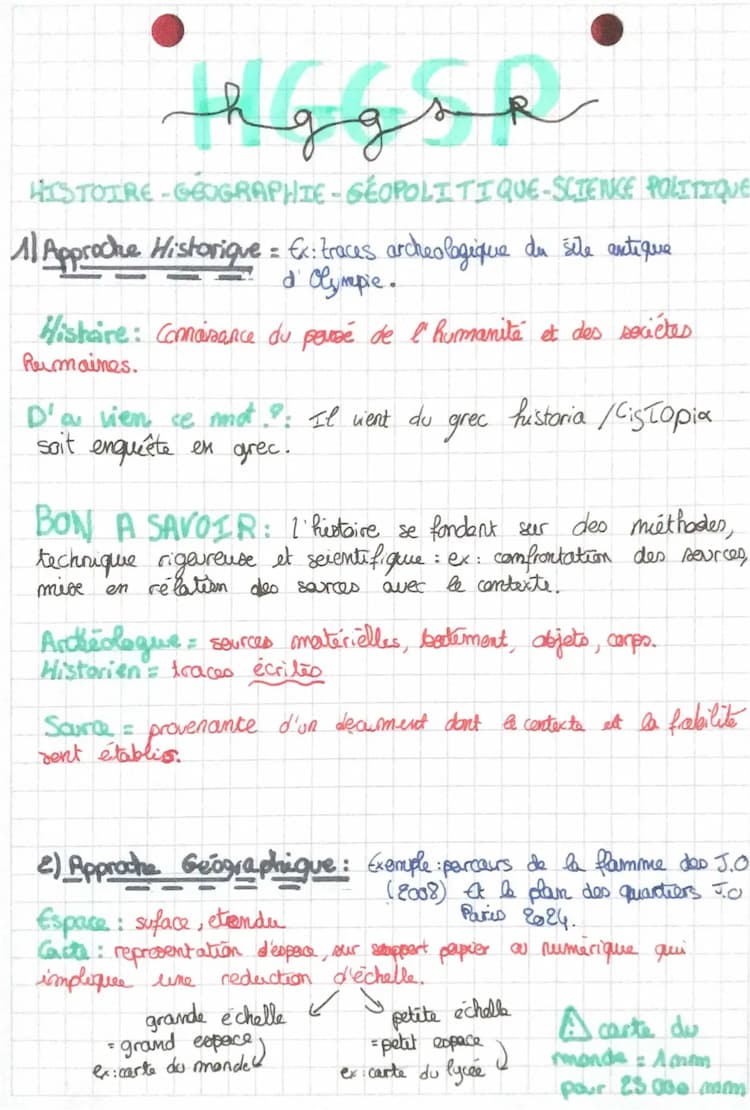 HGGSP
hggsp
HISTOIRE-GÉOGRAPHIE-GÉOPOLITIQUE-SCIENCE POLITIQUE
1) Approche Historique = Ex: traces archeologique du site antique
d'Olympie.
Histoire : Connaissance du passé de l'humanité et des sociétes
humaines.
D'ou vien ce mot ? : Il vient du grec historia / ἱστορία
soit enquête en grec.
BON A SAVOIR : l'histoire se fondent sur des méthodes,
technique rigoureuse et scientifique : ex : confrontation des sources,
mise en rélation des sources avec le contexte.
Archéologue = sources matérielles, batement, objets, corps.
Historien = traces écrites
Source = provenante d'un document dont le contexte et la fiabilité
sont établis.
2) Approche Géographique : Exemple : parcours de la flamme des J.O
(2008) et le plan des quartiers J.O
Paris 2024.
Espace : suface, etendu
Carte : representation d'espace, sur support papier ou numérique qui
implique une reduction d'échelle.
grande échelle petite échelle
= grand espace = petit espace
ex : carte du monde ex : carte du lycée
⚠ carte du
monde = 1mm
pour 25 000 mm